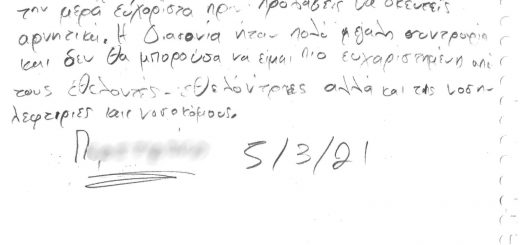 την μερά ευχάριστα πριν προλάβεις να σκευτείς
αρνητικά. Η Διακονία ήταν πολύ μεγάλη συντροφιά
και δεν θα μπορούσα να είμαι πιο ευχαριστημένη από
τους έθελοντές - έθελόντριες αλλά και τις νοση-
λεφτριες και νοσοκόμους.
Π
5/3/21